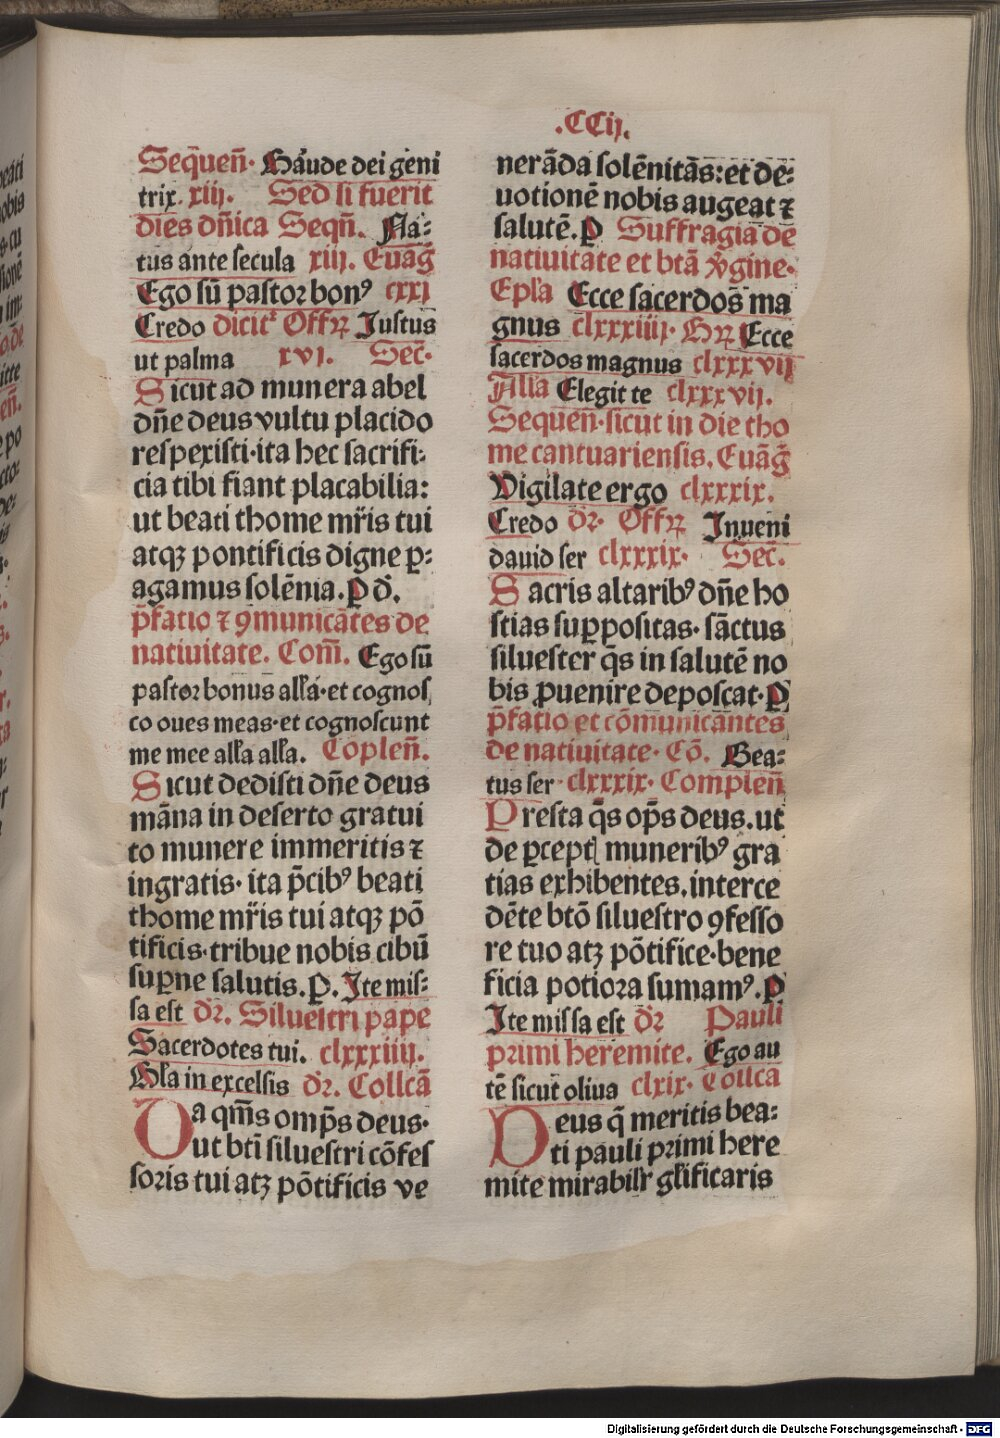 .CCij.
Sequeñ. Gaude dei geni
trix. xiij. Sed si fuerit
dies dñica Seqñ. Na-
tus ante secula xiij. Euãg̃
Ego sũ pastor bonꝰ cxxj
Credo dicit᷑ Offꝝ Justus
ut palma xvj. Sec̃.
Sicut ad munera abel
dñe deus vultu placido
respexisti·ita hec sacrifi-
cia tibi fiant placabilia:
ut beati thome mr̃is tui
atqꝫ pontificis digne ꝑ-
agamus solẽnia. P d̃.
p̃fatio ⁊ ꝯmunicãtes de
natiuitate. Com̃. Ego sũ
pastor bonus allã·et cognos
co oues meas·et cognoscunt
me mee allã allã. Copleñ.
Sicut dedisti dñe deus
mãna in deserto gratui
to munere immeritis ⁊
ingratis· ita p̃cibꝰ beati
thome mr̃is tui atqꝫ põ
tificis·tribue nobis cibũ
suꝑne salutis. P. Ite mis-
sa est dr̃. Siluestri pape
Sacerdotes tui. clxxxiiij.
Gl̃a in excelsis dr̃. Collcã
Da qm̃s omp̃s deus·
ut bti siluestri cõfes
soris tui atqꝫ põtificis ve
nerãda solẽnitãs: et de-
uotionẽ nobis augeat ⁊
salutẽ. P Suffragia de
natiuitate et btã ṽgine·
Epl̃a Ecce sacerdos ma
gnus clxxxiiij· Gꝝ Ecce
sacerdos magnus clxxxvij
All̃a Elegit te clxxxvij.
Sequeñ·sicut in die tho
me cantuariensis. Euãg̃
Vigilate ergo clxxxix.
Credo dr̃· Offꝝ Inueni
dauid ser clxxxix· Sec̃.
Sacris altaribꝰ dñe ho
stias suꝑpositas· sãctus
siluester q̃s in salutẽ no
bis ꝓuenire deposcat· P
p̃fatio et cõmunicantes
de natiuitate· Cõ. Bea-
tus ser· clxxxix· Compleñ
Presta q̃s op̃s deus. ut
de ꝑcept muneribꝰ gra
tias exhibentes. interce
dẽte btõ siluestro ꝯfesso
re tuo atqꝫ põtifice·bene
ficia potiora sumamꝰ. P
Ite missa est dr̃ Pauli
primi heremite. Ego au
tẽ sicut oliua clxix· Collcã
Deus q̃ meritis bea-
ti pauli primi here
mite mirabilr̃ gl̃ificaris
Digitalisierung gefördert durch die Deutsche Forschungsgemeinschaft - DFG